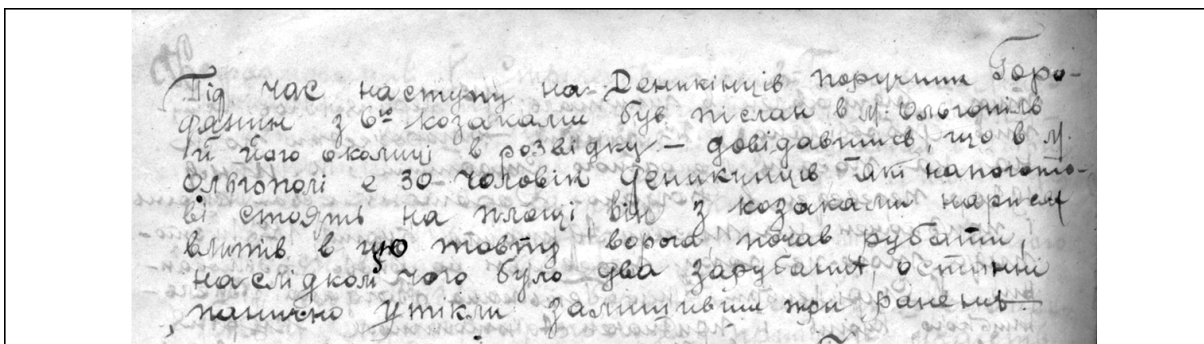 Під час наступу на Деникінців поручник Горо-
дянин з 6ма козаками був післан в м. Ольгопіль
й його околиці в розвідку – довідавшись, що в м.
Ольгополі є 30 чоловік Деникинців які напогото-
ві стоять на площі, він з козаками карием
влитів в цю товпу ворога почав рубати,
наслідком чого було два зарубаних, останні
панично утікли залишивши три ранених.